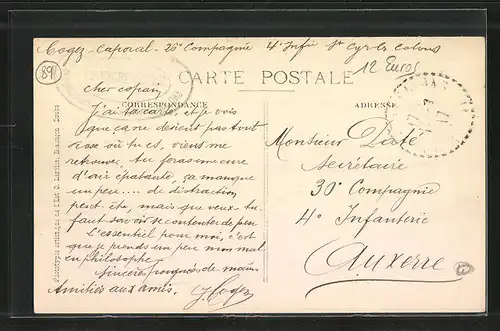 Cogez - Caporal - 28e Compagnie 4e Infie St Cyr les Colons
89
12 Euros
CARTE POSTALE
CORRESPONDANCE
ADRESSE
Cher copain
J'ai ta carte, et je vois
que ça ne devient pas tout
rose où tu es, viens me
retrouver, tu feras une cure
d'air épatante, ça manque
un peu .... de distraction
peut être, mais que veux-tu
faut savoir se contenter de peu
L'essentiel pour moi, c'est
que je prends un peu mon mal
en philosophe.
Sincère poignée de main
Amitiés aux amis. J Cogez
Monsieur
Secrétaire
30e Compagnie
4e Infanterie
Auxerre
17